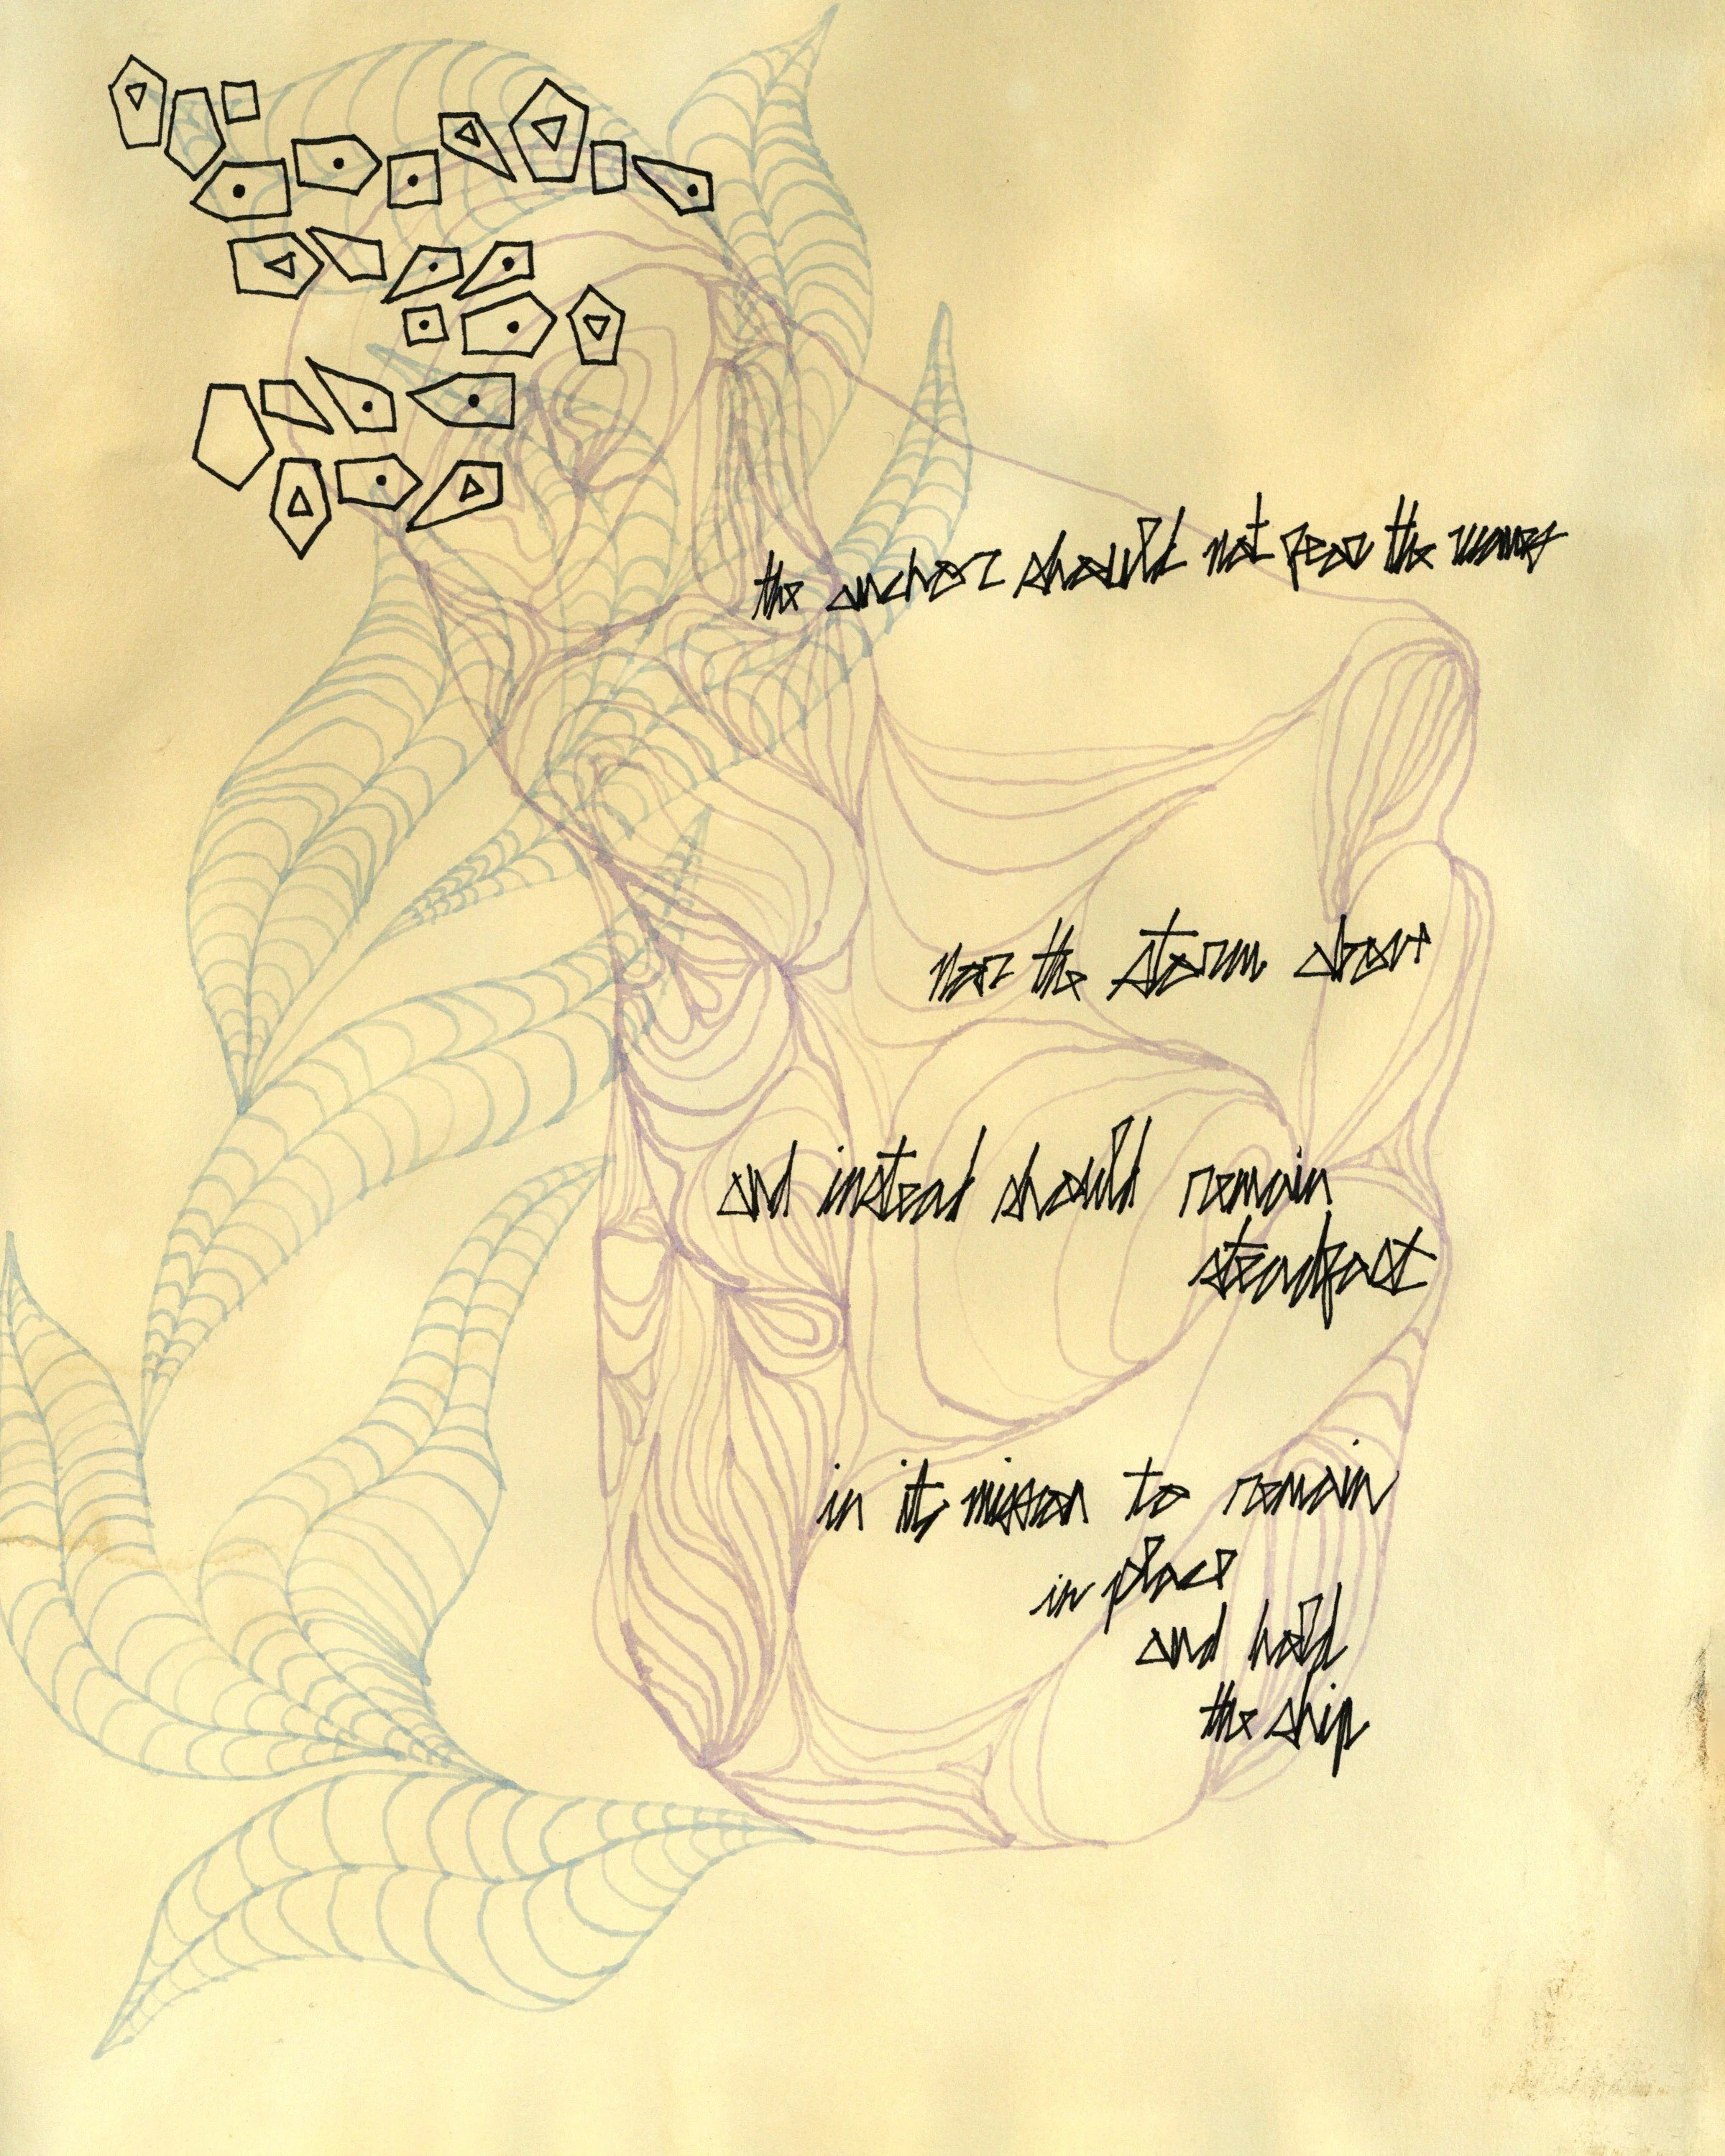 the anchor should not fear the waves
nor the storm above
and instead should remain
steadfast
in its mission to remain
in place
and hold
the ship